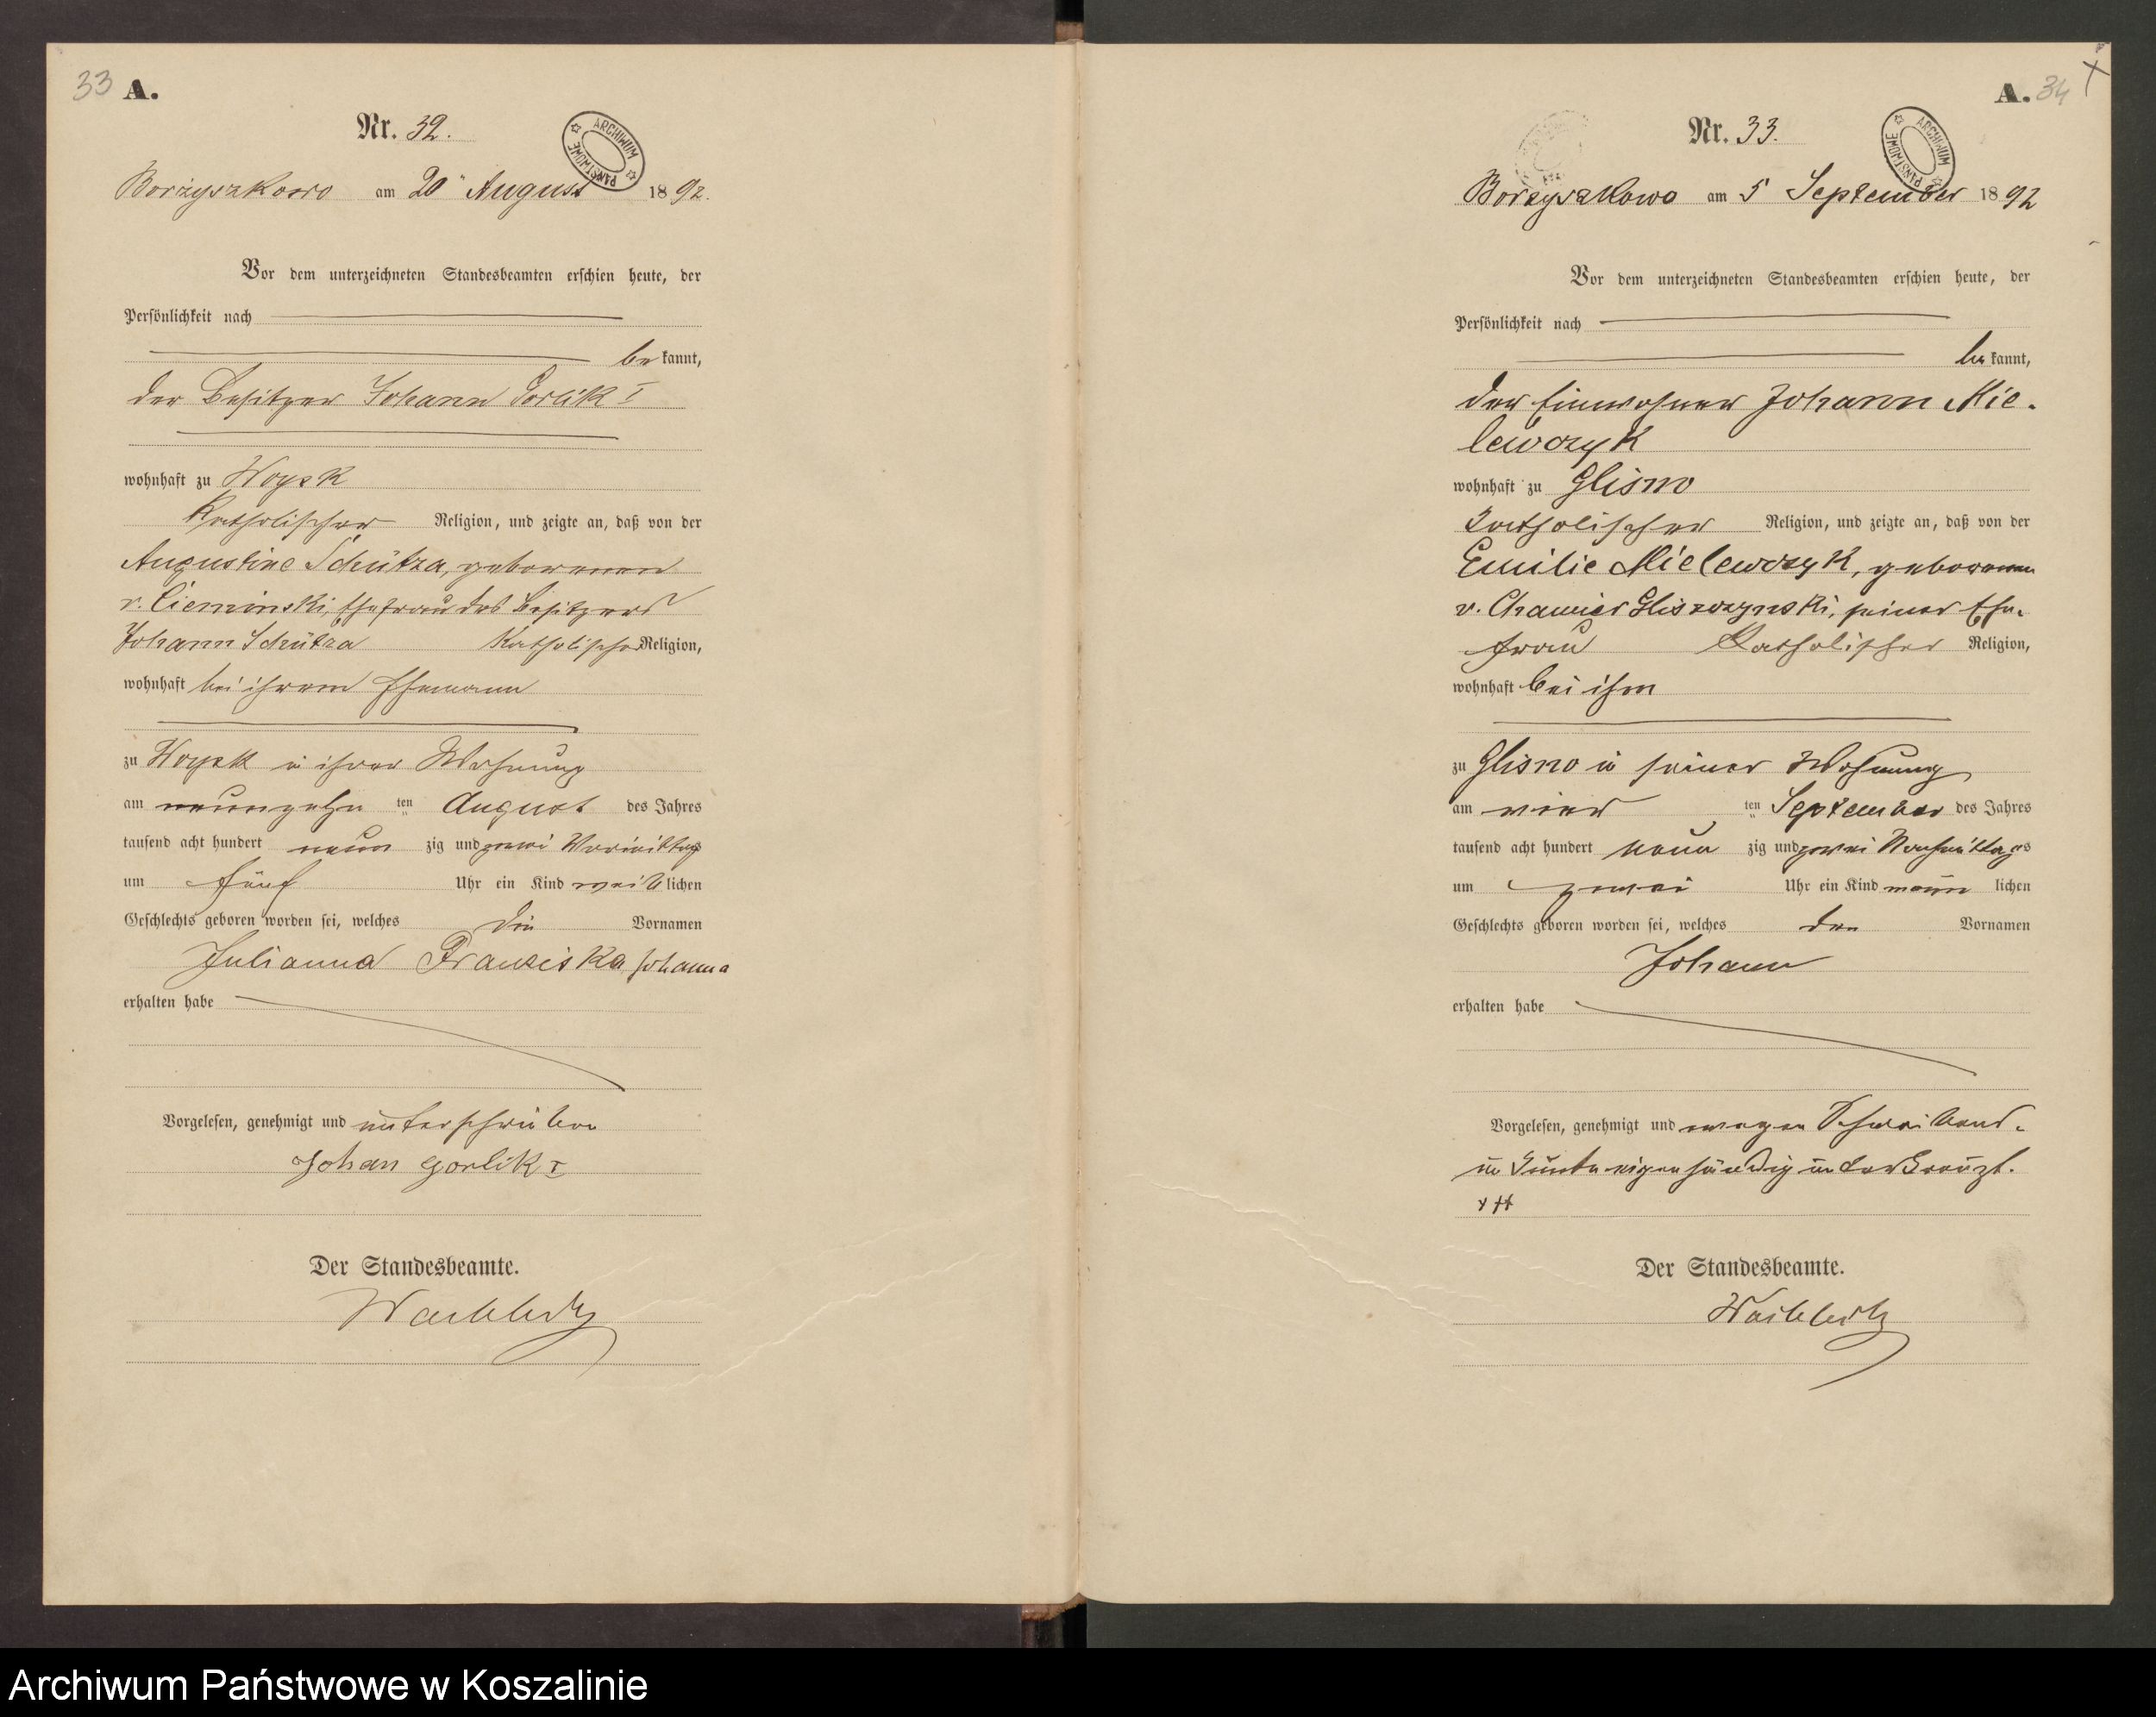 33 A.
Nr. 32.
ARCHIWUM PAŃSTWOWE
Borzyszkowo am 20 August 1892.
Vor dem unterzeichneten Standesbeamten erschien heute, der
Persönlichkeit nach
be kannt,
der Besitzer Johann Gorlik I
wohnhaft zu Woysk
katholischer Religion, und zeigte an, daß von der
Augustine Schütza, geborenen
v. Cieminski, Ehefrau des Besitzers
Johann Schütza katholischer Religion,
wohnhaft bei ihrem Ehemann
zu Woysk in ihrer Wohnung
am neunzehn ten August des Jahres
tausend acht hundert neun zig und zwei Vormittags
um fünf Uhr ein Kind weib lichen
Geschlechts geboren worden sei, welches die Vornamen
Julianna Franziska Johanna
erhalten habe
Vorgelesen, genehmigt und unterschrieben
Johan Gorlik I
Der Standesbeamte.
A. 34
Nr. 33.
ARCHIWUM PAŃSTWOWE
Borzyszkowo am 5 September 1892
Vor dem unterzeichneten Standesbeamten erschien heute, der
Persönlichkeit nach
be kannt,
der Einwohner Johann Mie-
lewczyk
wohnhaft zu Glisno
katholischer Religion, und zeigte an, daß von der
Emilie Mielewczyk, geborenen
v. Chamier Gliszczynski, seiner Ehe-
frau katholischer Religion,
wohnhaft bei ihm
zu Glisno in seiner Wohnung
am vier ten September des Jahres
tausend acht hundert neun zig und zwei Nachmittags
um zwei Uhr ein Kind männ lichen
Geschlechts geboren worden sei, welches den Vornamen
Johann
erhalten habe
Vorgelesen, genehmigt und wegen Schreibens-
unkunde eigenhändig unterkreuzt.
+++
Der Standesbeamte.
Archiwum Państwowe w Koszalinie